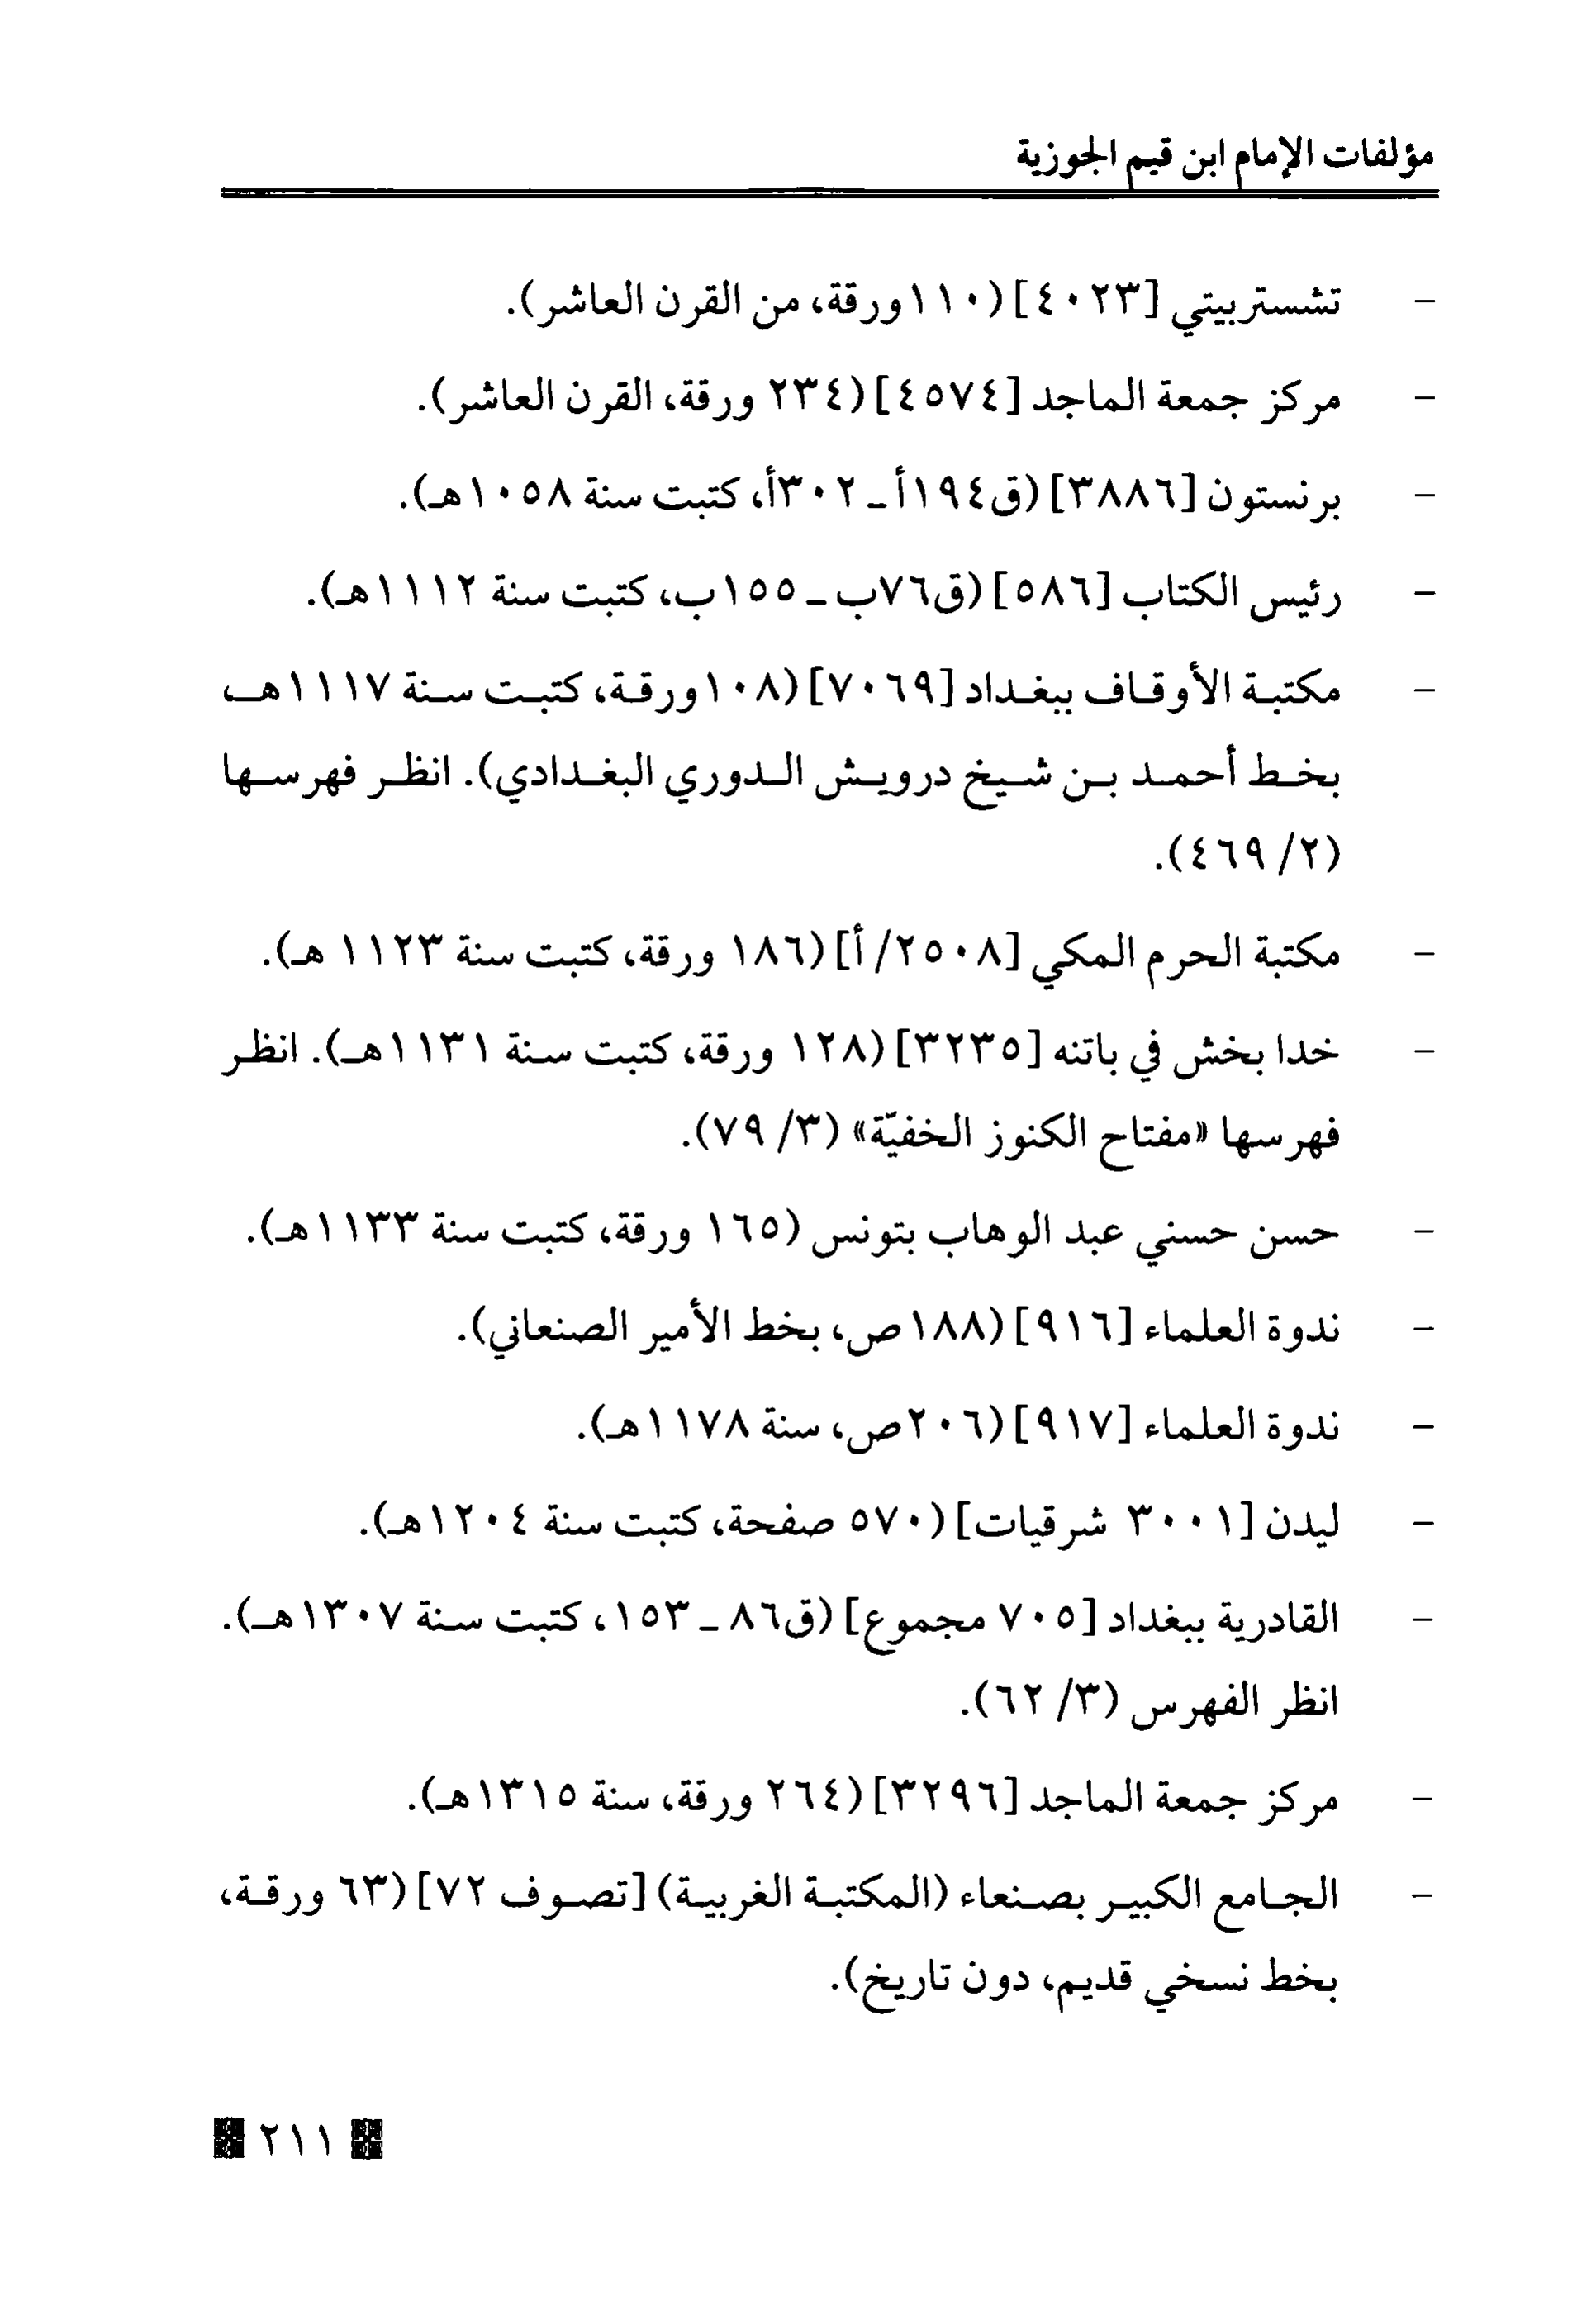 مؤلفات الإمام ابن قيم الجوزية
- تشستربيتي [٤٠٢٣] (١١٠ورقة، من القرن العاشر).
- مركز جمعة الماجد [٤٥٧٤] (٢٣٤ ورقة، القرن العاشر).
- برنستون [٣٨٨٦] (ق١٩٤أ ـ ٣٠٢أ، كتبت سنة ١٠٥٨هـ).
- رئيس الكتاب [٥٨٦] (ق٧٦ب ـ ١٥٥ب، كتبت سنة ١١١٢هـ).
- مكتبة الأوقاف ببغداد [٧٠٦٩] (١٠٨ورقة، كتبت سنة ١١١٧هـ،
بخط أحمد بن شيخ درويش الدوري البغدادي). انظر فهرسها
(٢/ ٤٦٩).
- مكتبة الحرم المكي [٢٥٠٨/ أ] (١٨٦ ورقة، كتبت سنة ١١٢٣ هـ).
- خدا بخش في باتنه [٣٢٣٥] (١٢٨ ورقة، كتبت سنة ١١٣١هـ). انظر
فهرسها «مفتاح الكنوز الخفيّة» (٣/ ٧٩).
- حسن حسني عبد الوهاب بتونس (١٦٥ ورقة، كتبت سنة ١١٣٣هـ).
- ندوة العلماء [٩١٦] (١٨٨ص، بخط الأمير الصنعاني).
- ندوة العلماء [٩١٧] (٢٠٦ص، سنة ١١٧٨هـ).
- ليدن [٣٠٠١ شرقيات] (٥٧٠ صفحة، كتبت سنة ١٢٠٤هـ).
- القادرية ببغداد [٧٠٥ مجموع] (ق٨٦ ـ ١٥٣، كتبت سنة ١٣٠٧هـ).
انظر الفهرس (٣/ ٦٢).
- مركز جمعة الماجد [٣٢٩٦] (٢٦٤ ورقة، سنة ١٣١٥هـ).
- الجامع الكبير بصنعاء (المكتبة الغربية) [تصوف ٧٢] (٦٣ ورقة،
بخط نسخي قديم، دون تاريخ).
٢١١